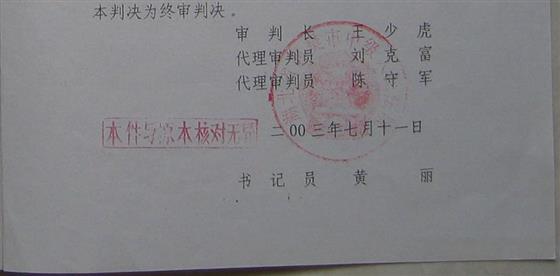 本判决为终审判决。
审 判 长 王 少 虎
代理审判员 刘 克 富
代理审判员 陈 守 军
本件与原本核对无异
二00三年七月十一日
书 记 员 黄 丽